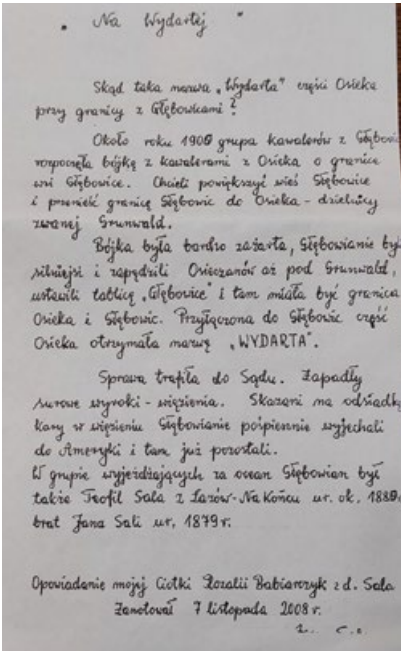 „ Na Wydartej "
Skąd taka nazwa „Wydarta" części Osieka
przy granicy z Głębowicami?
Około roku 1900 grupa kawalerów z Głębowic
rozpoczęła bójkę z kawalerami z Osieka o granice
wsi Głębowice. Chcieli powiększyć wieś Głębowice
i przenieść granicę Głębowic do Osieka - dzielnicy
zwanej Grunwald.
Bójka była bardzo zażarta, Głębowianie byli
silniejsi i zapędzili Osieczanów aż pod Grunwald,
ustawili tablicę „Głębowice" i tam miała być granica
Osieka i Głębowic. Przyłączona do Głębowic część
Osieka otrzymała nazwę „WYDARTA".
Sprawa trafiła do Sądu. Zapadły
surowe wyroki - więzienia. Skazani na odsiadkę
kary w więzieniu Głębowianie pośpiesznie wyjechali
do Ameryki i tam już pozostali.
W grupie wyjeżdżających za ocean Głębowian był
także Teofil Sala z Łazów-Na Końcu ur. ok. 1880
brat Jana Sali ur. 1879 r.
Opowiadanie mojej Ciotki Rozalii Babiarczyk z d. Sala
Zanotował 7 listopada 2008 r.